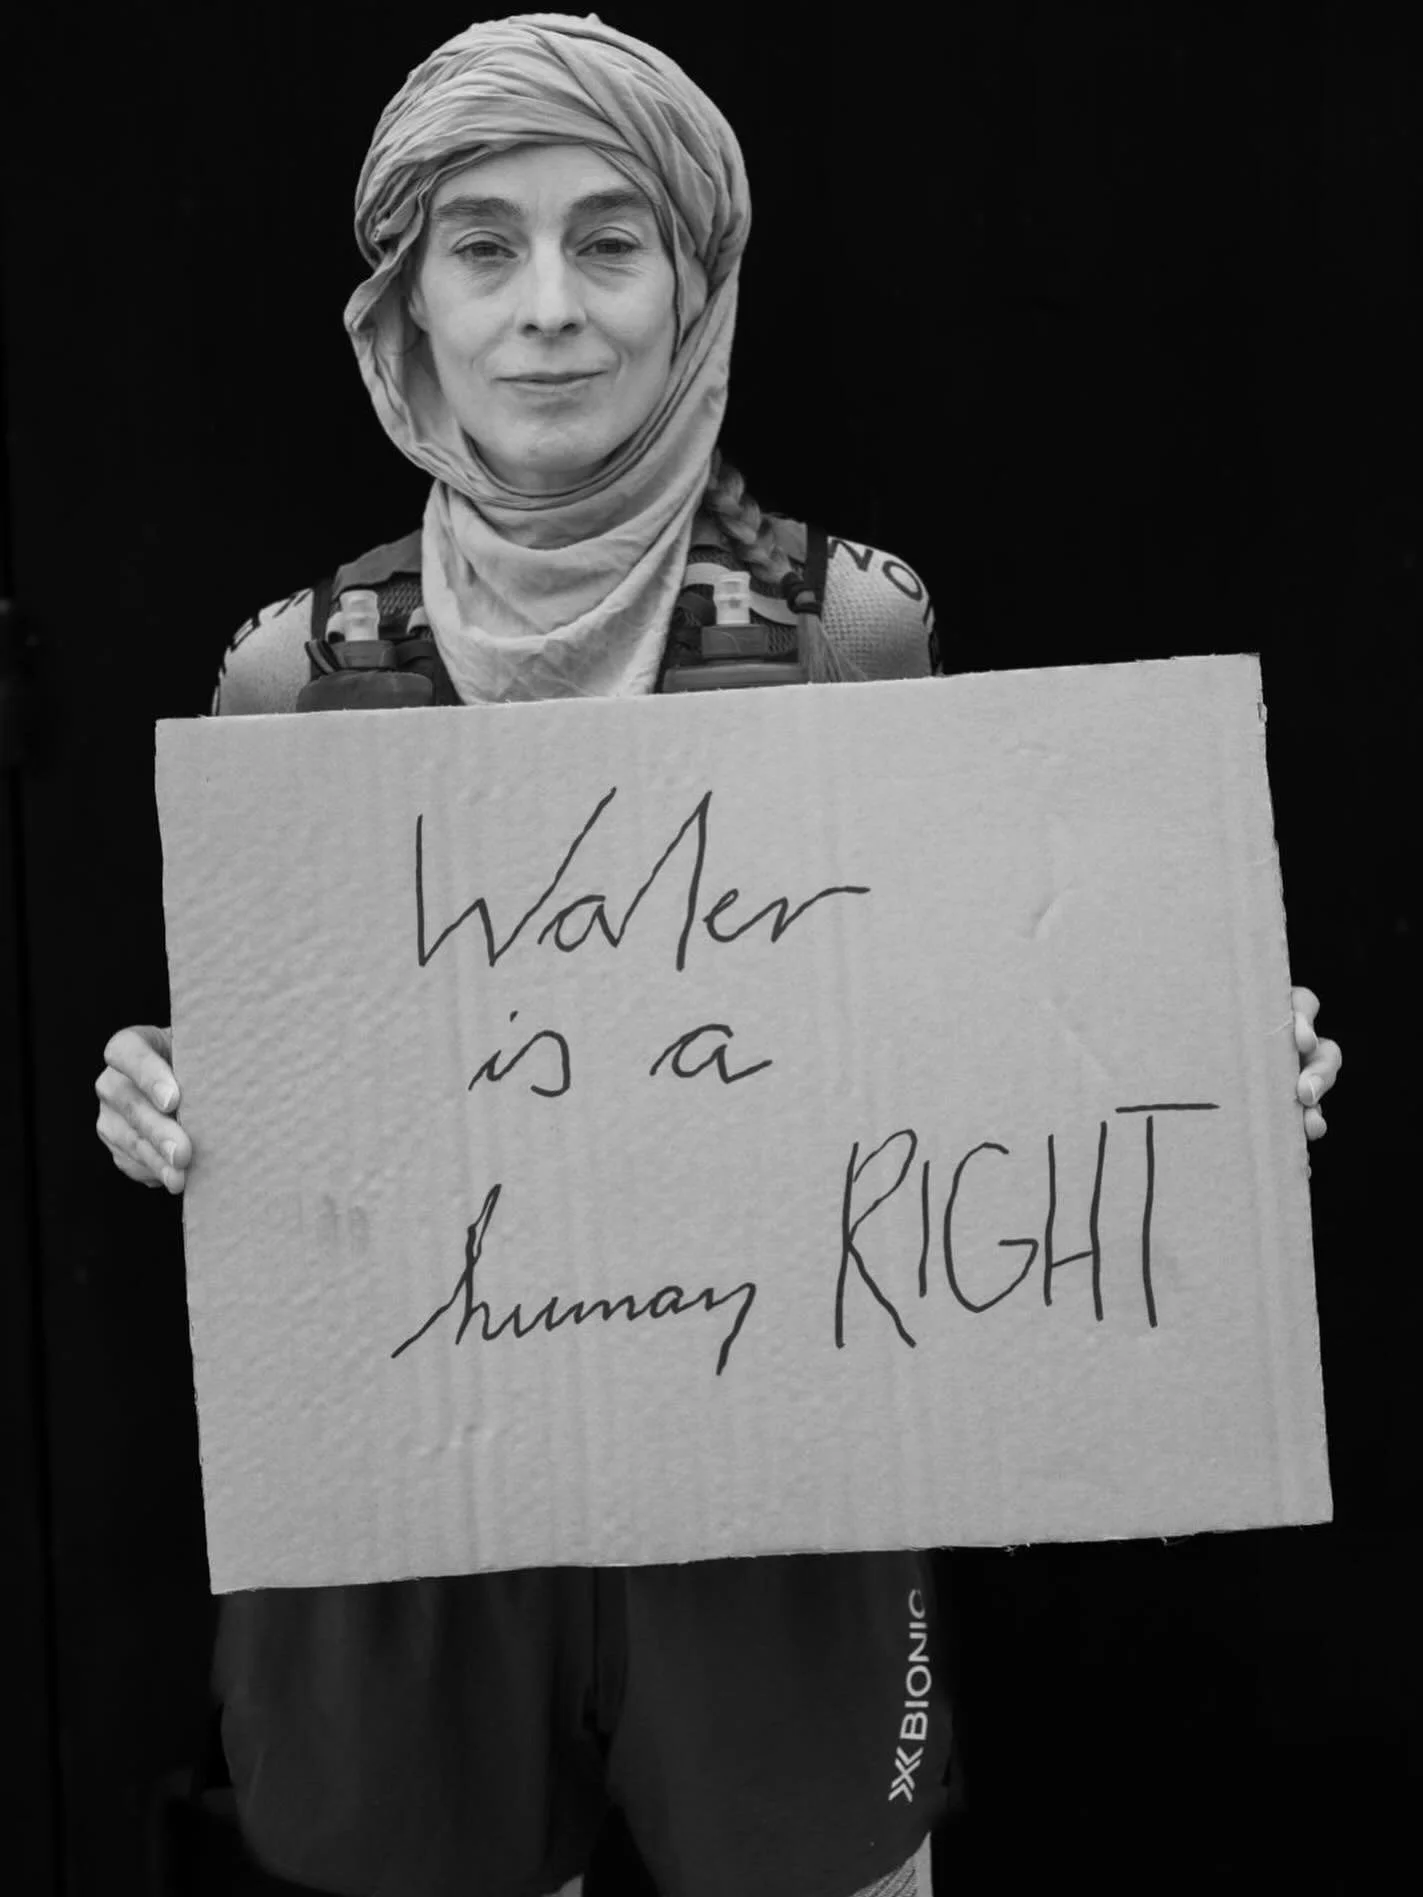 Water
is a
human RIGHT
X BIONIC